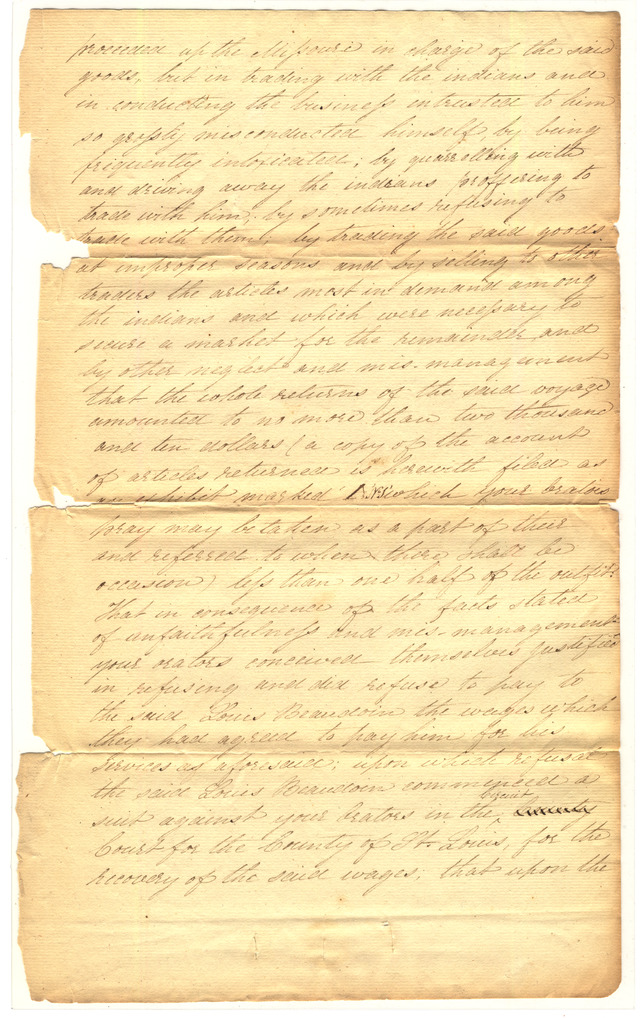 proceeded up the Missouri in charge of the said
goods, but in trading with the indians and
in conducting the business intrusted to him
so grossly misconducted himself, by being
frequently intoxicated; by quarrelling with
and driving away the indians proffering to
trade with him; by sometimes refusing to
trade with them; by trading the said goods
at improper seasons and by selling to other
traders the articles most in demand among
the indians and which were necessary to
secure a market for the remainder, and
by other neglect and mis-management
that the whole returns of the said voyage
amounted to no more than two thousand
and ten dollars (a copy of the account
of articles returned is herewith filed as
an exhibit marked which your orators
pray may be taken as a part of their
and referred to when there shall be
occasion) less than one half of the outfit:
That in consequence of the facts stated
of unfaithfulness and mis-management
your orators conceived themselves justified
in refusing and did refuse to pay to
the said Louis Beaudoin the wages which
they had agreed to pay him for his
services as aforesaid; upon which refusal
the said Louis Beaudoin commenced a
suit against your orators in the circuit
Court for the County of St. Louis, for the
recovery of the said wages; that upon the